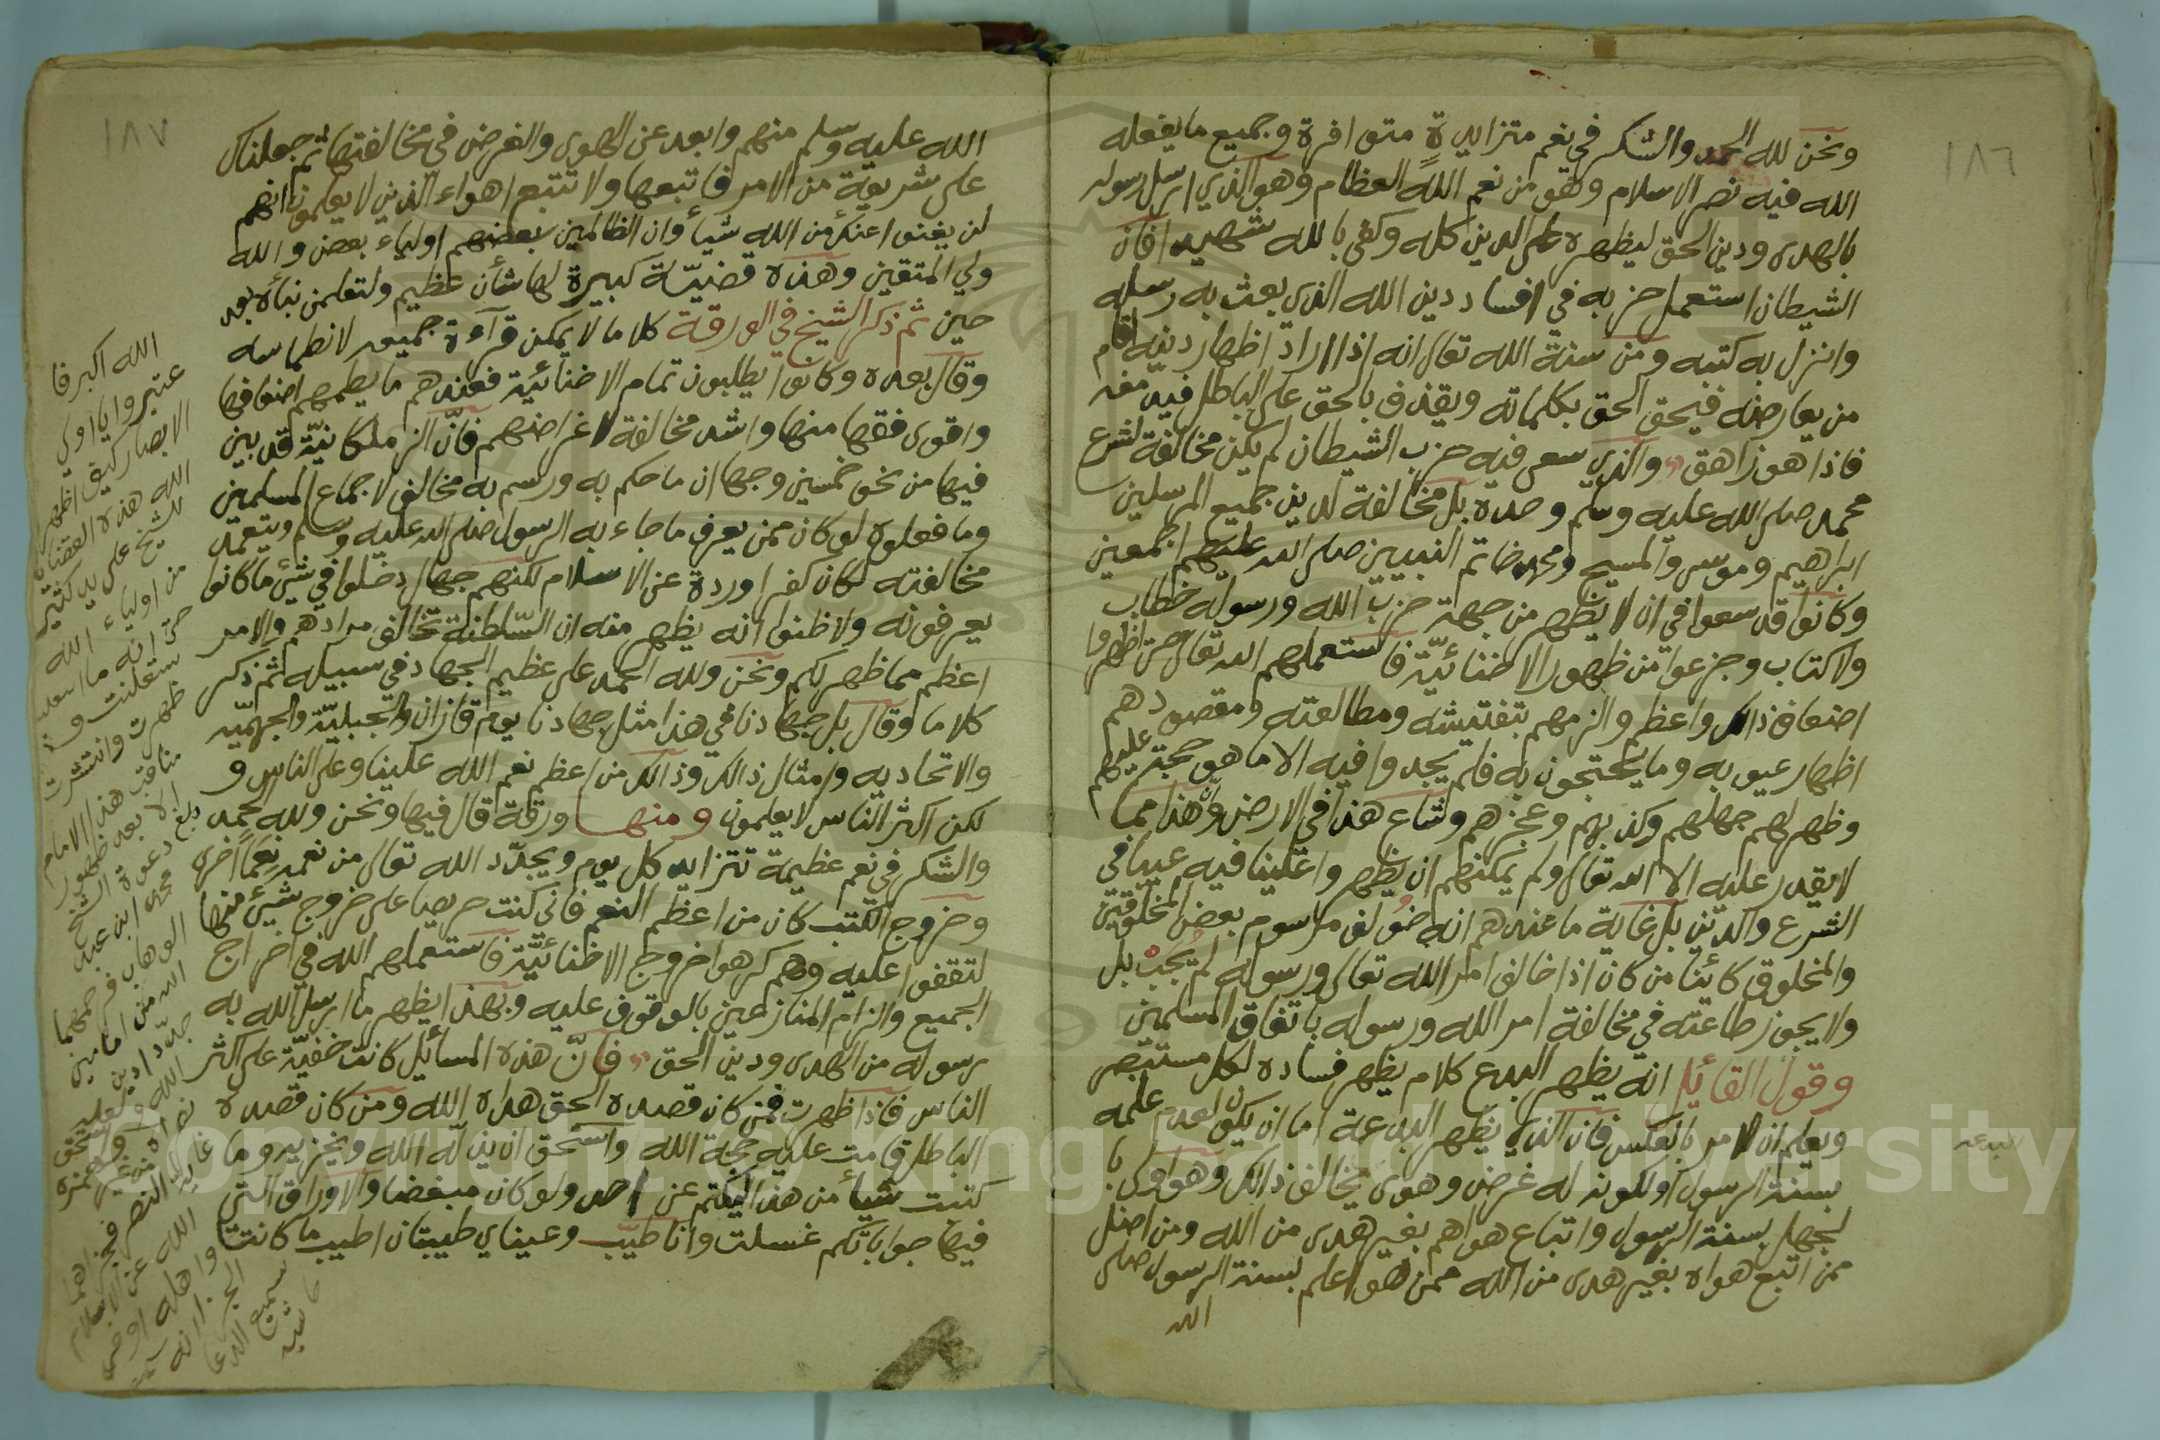 ١٨٦
ونحن لله الحمد والشكر في نعم متزايدة متوافرة وجميع ما يفعله
الله فيه نصر الاسلام وهو من نعم الله العظام وهو الذي ارسل رسوله
بالهدى ودين الحق ليظهره على الدين كله وكفى بالله شهيدا فان
الشيطان استعمل حزبه في افساد دين الله الذي بعث به رسله
وانزل به كتبه ومن سنة الله تعالى انه اذا اراد اظهار دينه اقام
من يعارضه فيحق الحق بكلماته ويقذف بالحق على الباطل فيدمغه
فاذا هو زاهق والذي سعى فيه حزب الشيطان لم يكن مخالفة لشرع
محمد صلى الله عليه وسلم وحده بل مخالفة لدين جميع المرسلين
ابراهيم وموسى والمسيح ومحمد خاتم النبيين صلى الله عليهم اجمعين
وكانوا قد سعوا في ان لا يظهر من جهة حزب الله ورسوله خطاب
ولا كتاب وجزعوا من ظهور الاخنائيّة فاستعملهم الله تعالى حتى اظهروا
اضعاف ذالك واعظم والزمهم بتفتيشه ومطالعته ومقصودهم
اظهار عيوبه وما يحتجون به فلم يجدوا فيه الا ما هو حجة عليهم
وظهر لهم جهلهم وكذبهم وعجزهم وشاع هذا في الارض وان هذا مما
لا يقدر عليه الا الله تعالى ولم يمكنهم ان يظهروا علينا فيه عيبا في
الشرع والدين بل غاية ما عندهم انه خولف مرسوم بعض المخلوقين
والمخلوق كائنا من كان اذا خالف امر الله تعالى ورسوله لم يجب بل
ولا يجوز طاعته في مخالفة امر الله ورسوله باتفاق المسلمين
وقول القائل انه يظهر البدع كلام يظهر فساده لكل مستبصر
ويعلم ان الامر بالعكس فان الذي يظهر البدعة اما ان يكون لعدم علمه
بسنة الرسول او لكونه له غرض وهوى يخالف ذالك وهو اولى با
لجهل بسنة الرسول واتباع هواهم بغير هدى من الله ومن اضل
ممن اتبع هواه بغير هدى من الله ممن هو اعلم بسنة الرسول صلى
الله
١٨٧
الله عليه وسلم منهم وابعد عن الهوى والغرض في مخالفتها ثم جعلناك
على شريعة من الامر فاتبعها ولا تتبع اهواء الذين لا يعلمون انهم
لن يغنوا عنك من الله شيأ وان الظالمين بعضهم اولياء بعض والله
ولي المتقين وهذه قضيّة كبيرة لها شأن عظيم ولتعلمن نبأه بعد
حين ثم ذكر الشيخ في الورقة كلاما لا يمكن قرآءة جميعه لانطماسه
وقال بعده وكانوا يطلبون تمام الاخنائيّة فعندهم ما يطمهم اضعافها
واقوى فقها منها واشد مخالفة لاغراضهم فانّ الزملكانيّة قد بين
فيها من نحو خمسين وجها ان ما حكم به ورسم به مخالف لاجماع المسلمين
وما فعلوه لو كان ممن يعرف ما جاء به الرسول صلى الله عليه وسلم ويتعمد
مخالفته لكان كفرا وردة عن الاسلام لكنهم جهال دخلوا في شئ ما كانوا
يعرفونه ولا ظنوا انه يظهر منه ان السّلطنة تخالف مرادهم والامر
اعظم مما ظهر لكم ونحن ولله الحمد على عظيم الجهاد في سبيله ثم ذكر
كلاما وقال بل جهادنا في هذا مثل جهادنا يوم قازان والجبليّة والجهميّه
والاتحاديه وامثال ذالك وذالك من اعظم نعم الله علينا وعلى الناس و
لكن اكثر الناس لا يعلمون ومنها ورقة قال فيها ونحن ولله الحمد
والشكر في نعم عظيمة تتزايد كل يوم ويجدّد الله تعالى من نعمه نعماً اخرى
وخروج الكتب كان من اعظم النعم فاني كنت حريصا على خروج شئ منها
لتقفوا عليه وهم كرهوا خروج الاخنائيّة فاستعملهم الله في اخراج
الجميع والزام المنازعين بالوقوف عليه وبهذا يظهر ما ارسل الله به
رسوله من الهدى ودين الحق فانّ هذه المسائل كانت خفيّة على اكثر
الناس فاذا ظهرت فمن كان قصده الحق هداه الله ومن كان قصده
الباطل قامت عليه حجة الله واستحق ان يذلّه الله ويخزيه وما
كتبت شيأ من هذا ليكتم عن احد ولو كان مبغضا والاوراق التي
فيها جواباتكم غسلت وانا طيّب وعيناي طيبتان اطيب ما كانتا
الله اكبر فا
عتبروا يا اولي
الابصار كيف اظهر
الله هذه
للشيخ على يد كثير
من اولياء الله
حتى انه ما
ظهرت وانتشرت
مناقب هذا الامام
الا بعد ظهور
دعوة الشيخ
محمد ابن عبد
الوهاب فرحمهما
الله من امامين
جدّدا دين
الله
الله عن الاسلام
واهله
سميع الدعا